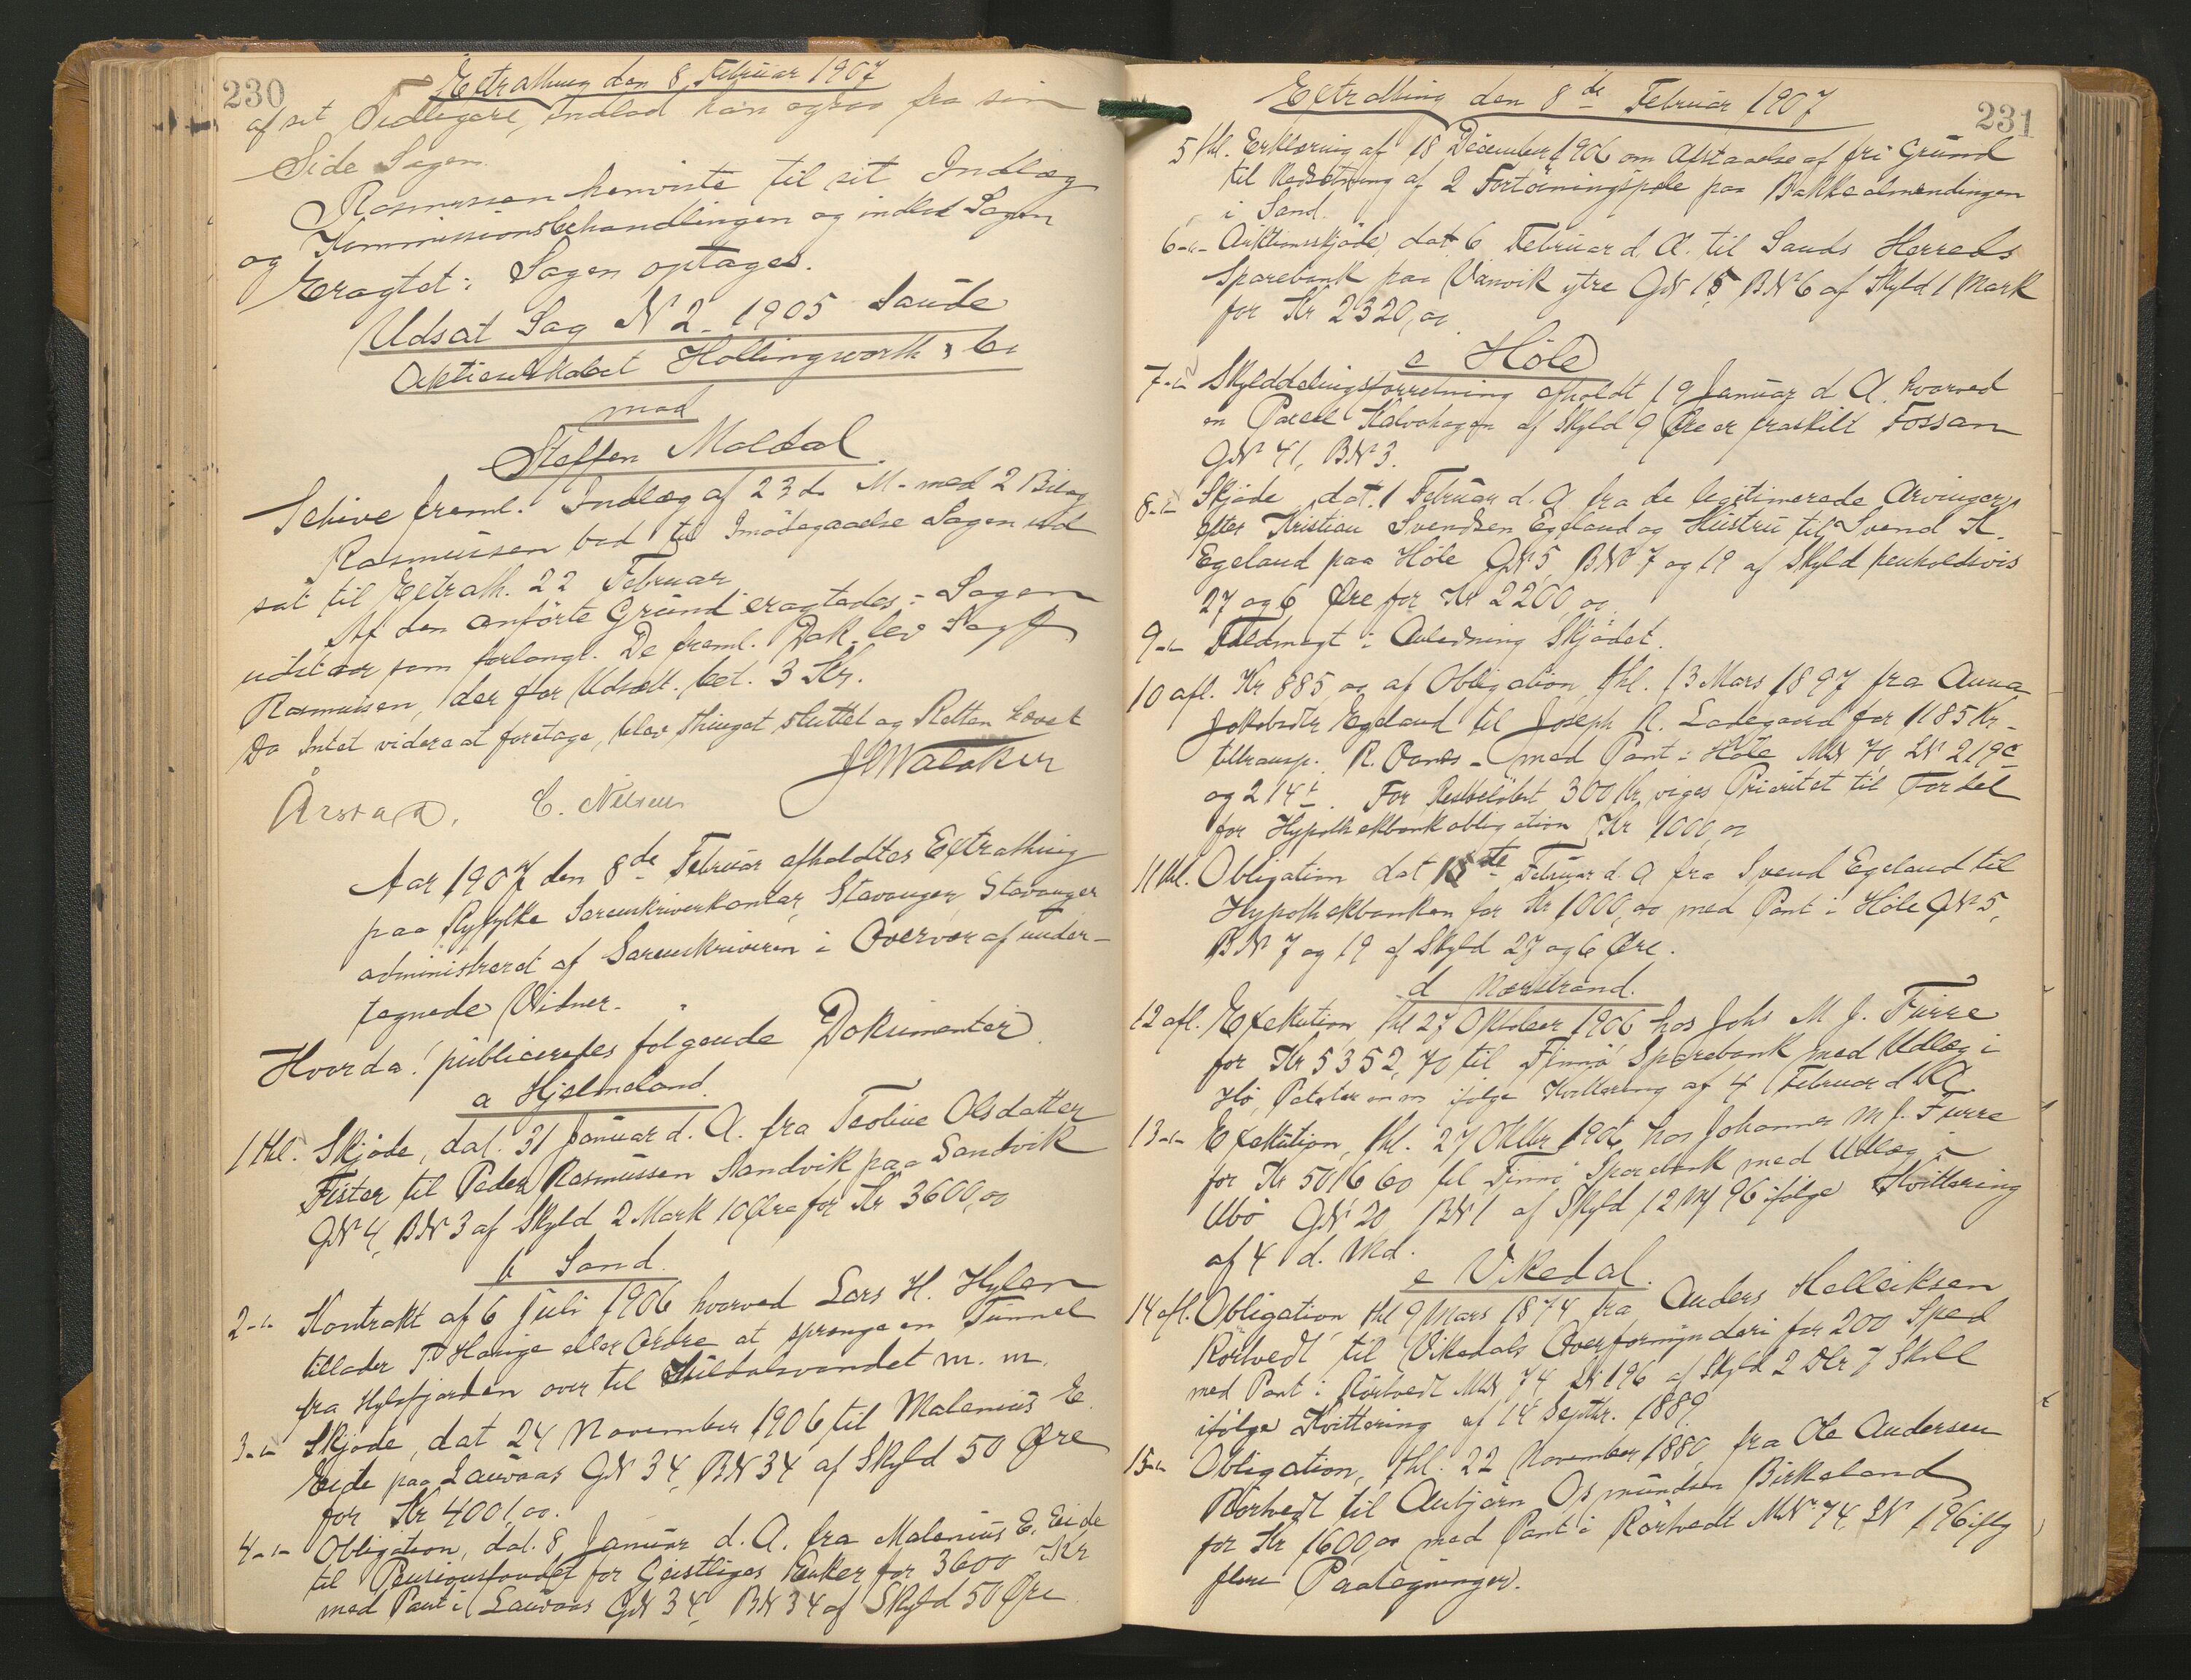 230
Extrathing den 8 Februar 1907
af sit Tidligere, Indlod han ogsaa fra sin
Side Sagen.
Rasmussen henviste til sit Indlæg
og Kommissionsbehandlingen og indlod Sagen
Eragtet: Sagen optages.
Udsat Sag N 2 - 1905 Saude
Aktieselskabet Hollingworth & Co
mod
Steffen Moldal.
Schive freml. Indlæg af 23 d. M. med 2 Bilag
Rasmussen bad til Imødegaaelse Sagen ud
sat til Extrath. 22 Februar
Af den anførte Grund eragtedes: Sagen
udsættes som forlangt. De freml. Dok. blev
Rasmussen, der for Udsætt. bet. 3 Kr.
Da Intet videre at foretage, blev Thinget sluttet og Retten hævet
Årstad. C. Nilsen
Aar 1907 den 8de Februar afholdtes Extrathing
paa Ryfylke Sorenskriverkontor, Stavanger Stavanger
administreret af Sorenskriveren i Overvær af under-
tegnede Vidner.
Hvorda! publiceredes følgende Dokumenter
a Hjelmeland.
1 thl. Skjøde, dat. 31 Januar d. A. fra Teoline Olsdatter
Fister til Peder Rasmussen Sandvik paa Sandvik
GN 4, BN 3 af Skyld 2 Mark 10 Øre for Kr 3600,oo
b Sand.
2-"- Kontrakt af 6 Juli 1906 hvorved Lars H. Hylen
tillader T. Hauge eller Ordre at sprenge en Tunnel
fra Hylsfjorden over til Suldalsvandet m. m.
3-"- Skjøde, dat 24 November 1906 til Malenius E.
Eide paa Lauvaas GN 34, BN 34 af Skyld 50 Øre
for Kr 4001,oo.
4-"- Obligation, dat. 8 Januar d. A. fra Malenius E. Eide
til Pensionsfondet for Geistliges Enker for 3600 Kr
med Pant i Lauvaas GN 34, BN 34 af Skyld 50 Øre
Extrathing den 8de Februar 1907
231
5 thl. Erklæring af 18 December 1906 om Afstaaelse af fri Grund
til Nedsætning af 2 Fortøiningspæle paa Bakkealmendingen
i Sand.
6-"- Auktionsskjøde, dat 6 Februar d. A. til Sands Herreds
Sparebank paa Vanvik ytre GN 15, BN 6 af Skyld 1 Mark
for Kr 2320,oo.
c Høle
7-"- Skylddelingsforretning afholdt 19 Januar d. A. hvorved
en Parcel Kalvehagen af Skyld 9 Øre er fraskilt Fossan
GN 41, BN 3.
8-"- Skjøde, dat. 1 Februar d. A. fra de legitimerede Arvinger
efter Kristian Svendsen Egeland og Hustru til Svend K.
Egeland paa Høle GN 5, BN 7 og 19 af Skyld henholdsvis
27 og 6 Øre for Kr 2200,oo.
9-"- Fuldmagt i Anledning Skjødet.
10 afl. Kr 885,oo af Obligation thl. 13 Mars 1897 fra Anna
Jakobsdtr Egeland til Joseph R. Ladegaard for 1185 Kr -
tiltransp. R. Oanes - med Pant i Høle MN 70, LN 219c
og 214 . For Restbeløbet 300 Kr, viges Prioritet til Fordel
for Hypothekbankobligation Kr 1000,oo
11 thl. Obligation dat 15te Februar d. A fra Svend Egeland til
Hypothekbanken for Kr 1000,oo med Pant i Høle GN 5,
BN 7 og 19 af Skyld 27 og 6 Øre.
d Nærstrand.
12 afl. Exekution, thl 27 Oktober 1906 hos Johs M. J. Furre
for Kr 5352,70 til Finnø Sparebank med Udlæg i
Hø, Poteter m m ifølge Kvittering af 4 Februar d. A.
13-"- Exekution, thl. 27 Oktbr 1906 hos Johannes M. J. Furre
for Kr 5016 60 til Finnø Sparebank med Udlæg i
Ubø GN 20 BN 1 af Skyld 12 M 96 ifølge Kvittering
af 4 d. Md.
e Vikedal.
14 afl. Obligation, thl 9 Mars 1874 fra Anders Helleiksen
Rørtvedt til Vikedals Overformynderi for 200 Spd
med Pant i Rørtvedt MN 74, LN 196 af Skyld 2 Dlr 7 Skill
ifølge Kvittering af 14 Septbr. 1889.
15-"- Obligation, thl. 22 November 1880, fra Ole Andersen
Rørtvedt til Aubjørn Osmundsen Birkeland
for Kr 1600,oo med Pant i Rørtvedt MN 74, LN 196 iflg
flere Paategninger.